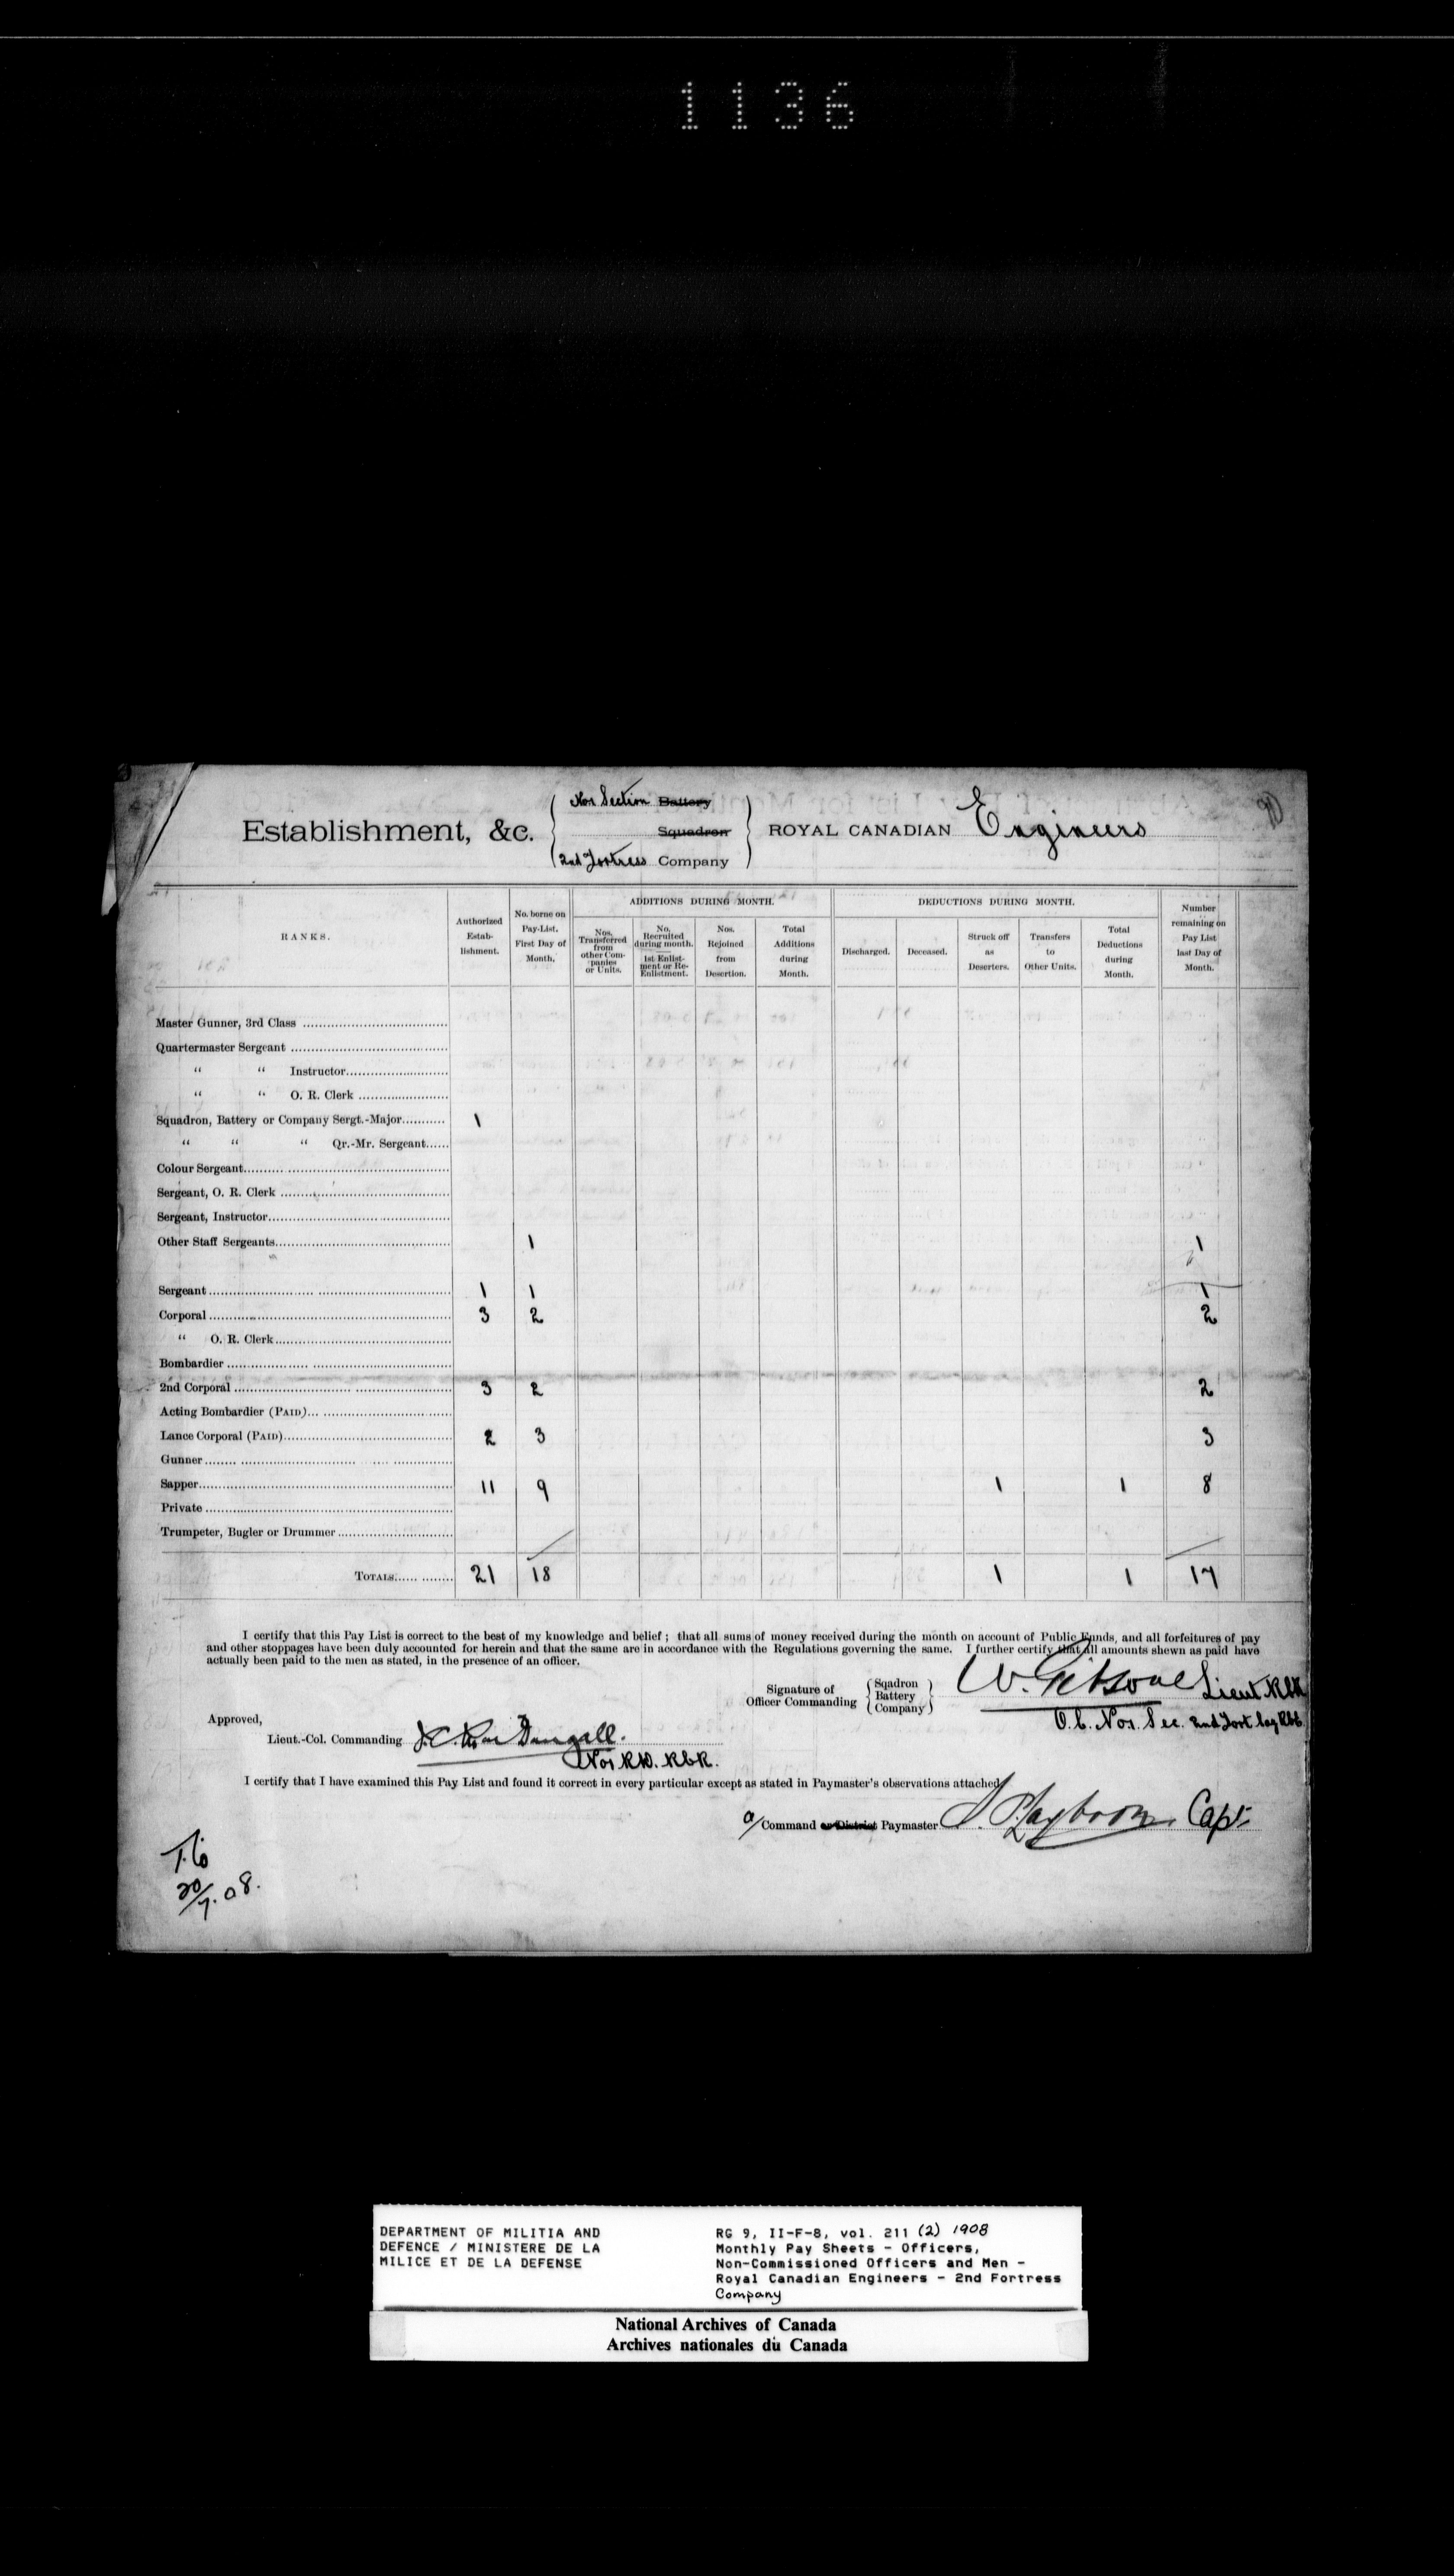 1136
Nos. Section Battery
Establishment, &c. Squadron ROYAL CANADIAN Engineers
2nd Fortress Company
RANKS.
Authorized Establishment.
No. borne on Pay-List, First Day of Month.
ADDITIONS DURING MONTH.
Nos. Transferred from other Companies or Units.
No. Recruited during month. 1st Enlistment or Re-Enlistment.
Nos. Rejoined from Desertion.
Total Additions during Month.
DEDUCTIONS DURING MONTH.
Discharged.
Deceased.
Struck off as Deserters.
Transfers to Other Units.
Total Deductions during Month.
Number remaining on Pay List last Day of Month.
Master Gunner, 3rd Class
Quartermaster Sergeant
“ “ Instructor
“ “ O. R. Clerk
Squadron, Battery or Company Sergt.-Major 1
“ “ “ Qr.-Mr. Sergeant
Colour Sergeant
Sergeant, O. R. Clerk
Sergeant, Instructor
Other Staff Sergeants 1 1
Sergeant 1 1 1
Corporal 3 2 2
“ O. R. Clerk
Bombardier
2nd Corporal 3 2 2
Acting Bombardier (PAID)
Lance Corporal (PAID) 2 3 3
Gunner
Sapper 11 9 1 1 8
Private
Trumpeter, Bugler or Drummer
TOTALS 21 18 1 1 17
I certify that this Pay List is correct to the best of my knowledge and belief; that all sums of money received during the month on account of Public Funds, and all forfeitures of pay
and other stoppages have been duly accounted for herein and that the same are in accordance with the Regulations governing the same. I further certify that all amounts shewn as paid have
actually been paid to the men as stated, in the presence of an officer.
Signature of Officer Commanding Sqadron Battery Company W. Lieut RCE
O.C. Nos. Sec. 2nd Fort Coy RCE
Approved,
Lieut.-Col. Commanding J.C. MacDougall.
I certify that I have examined this Pay List and found it correct in every particular except as stated in Paymaster's observations attached
a/Command or District Paymaster Capt.
20/7.08.
DEPARTMENT OF MILITIA AND
DEFENCE / MINISTERE DE LA
MILICE ET DE LA DEFENSE
RG 9, II-F-8, vol. 211 (2) 1908
Monthly Pay Sheets - Officers,
Non-Commissioned Officers and Men -
Royal Canadian Engineers - 2nd Fortress
Company
National Archives of Canada
Archives nationales du Canada